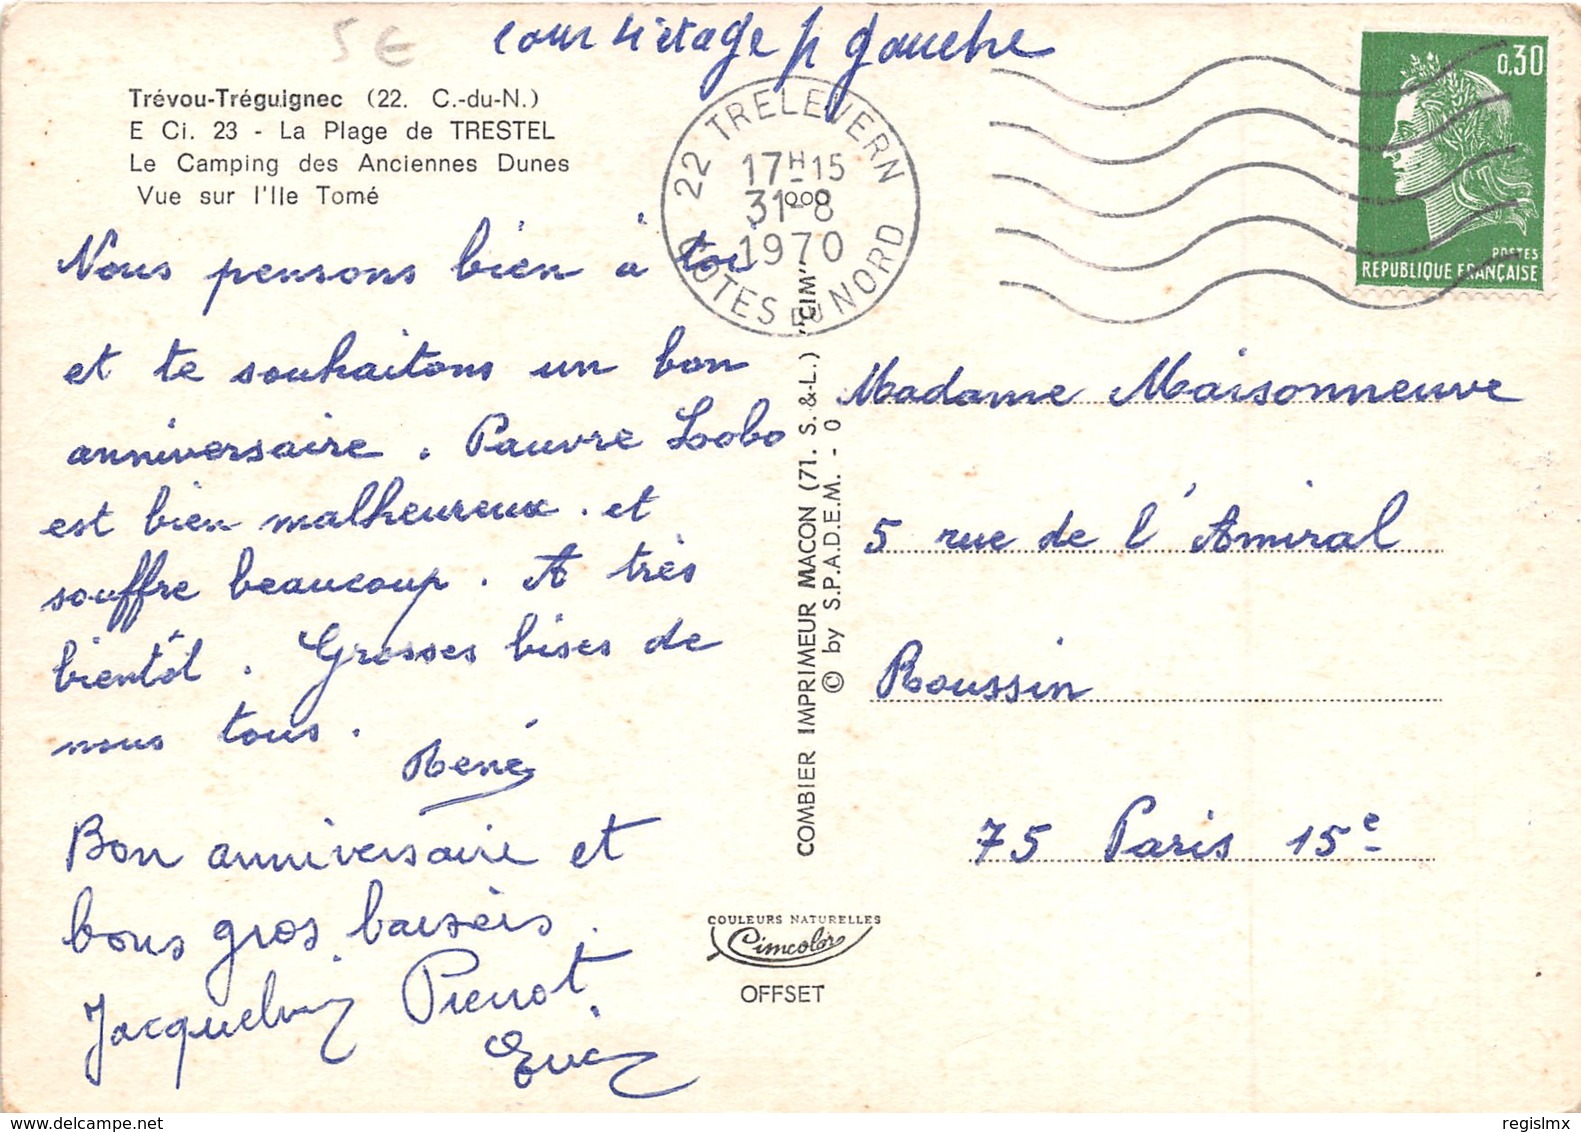 5€
cour 4 étage p gauche
Trévou-Tréguignec (22. C.-du-N.)
E Ci. 23 - La Plage de TRESTEL
Le Camping des Anciennes Dunes
Vue sur l'Ile Tomé
22 TRELEVERN
17H15
31-8
1970
COTES DU NORD
0,30
POSTES
REPUBLIQUE FRANÇAISE
Nous pensons bien à toi
et te souhaitons un bon
anniversaire. Pauvre Lobo
est bien malheureux. et
souffre beaucoup. A très
bientôt. Grosses bises de
nous tous.
René
Bon anniversaire et
bons gros baisers.
Jacqueline Pierrot
Eric
COMBIER IMPRIMEUR MACON (71. S.-&-L.) "CIM"
© by S.P.A.D.E.M. - 0
Madame Maisonneuve
5 rue de l'Amiral
Roussin
75 Paris 15e
COULEURS NATURELLES
Cimcolor
OFFSET
regislmx